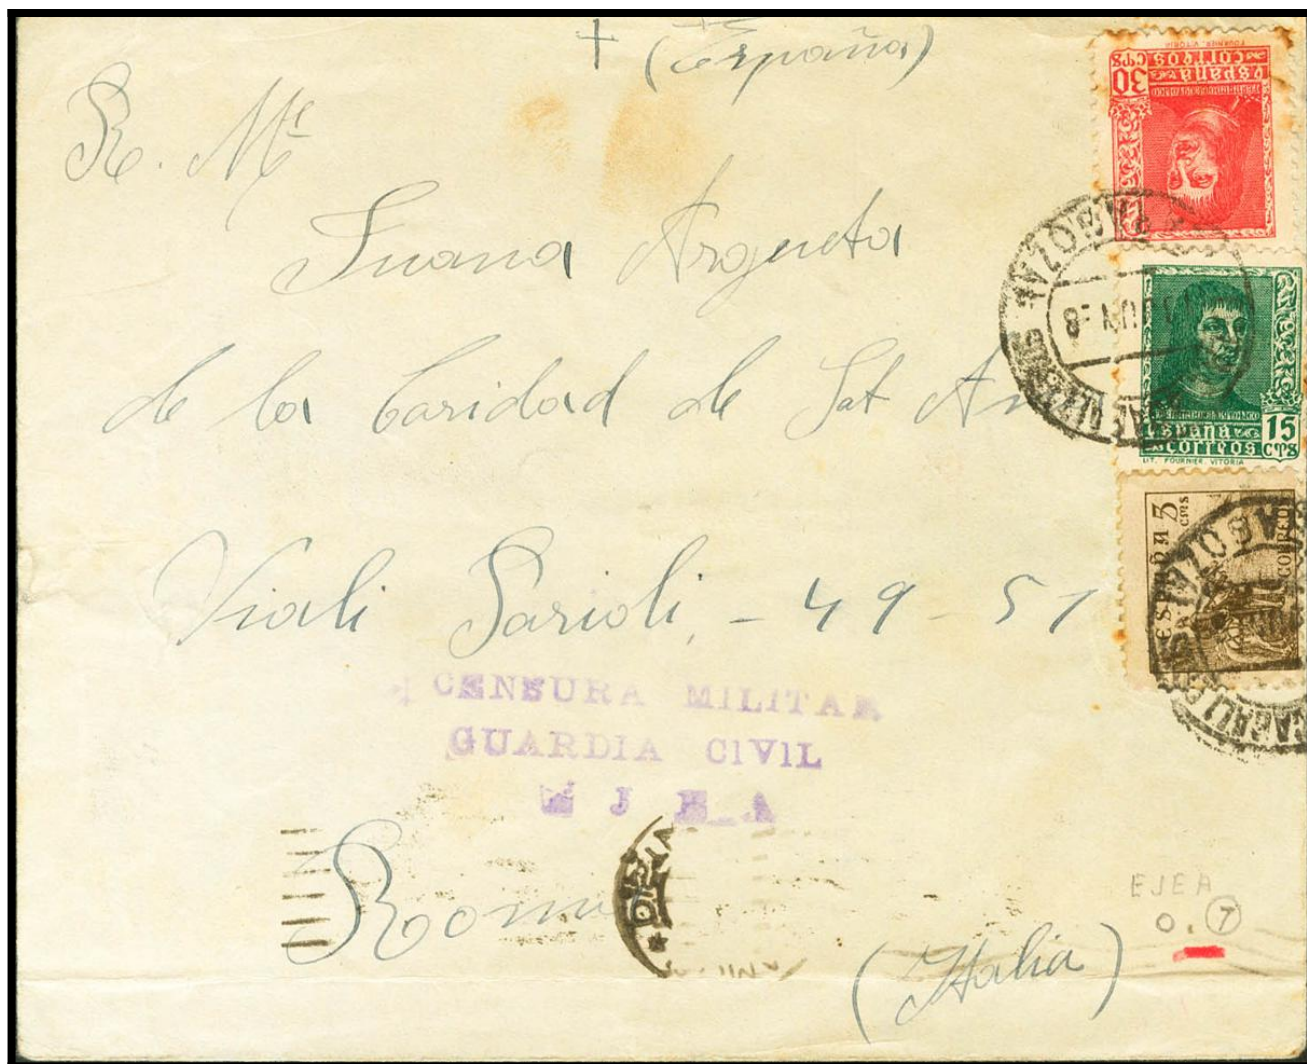 (España)
R. Me
Juana Argueta
de la Caridad de Sat An
Viali Parioli, - 49 - 51
CENSURA MILITAR
GUARDIA CIVIL
EJEA
Roma
(Italia)
EJEA
0. 7
FOURNIER. VITORIA
CORREOS
ESPAÑA
30 CTS
ESPAÑA
CORREOS
15 CTS
LIT. FOURNIER. VITORIA
ESPAÑA 5 CTMS
CORREOS
ZARAGOZA